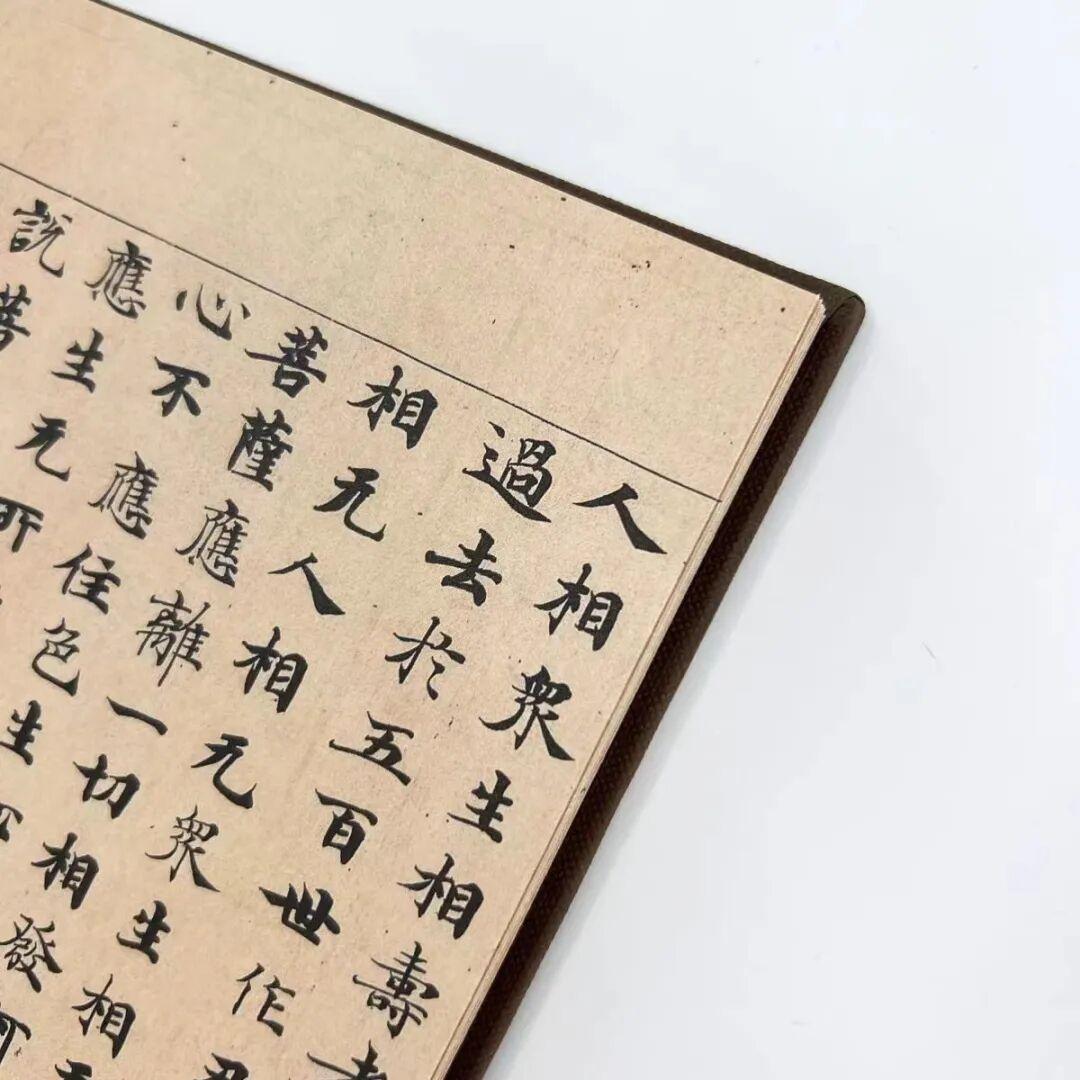 人相眾生相壽者
過去於五百世作忍
相无人相无眾生相无
菩薩應離一切相發阿
心不應住色生
應生无所
說菩